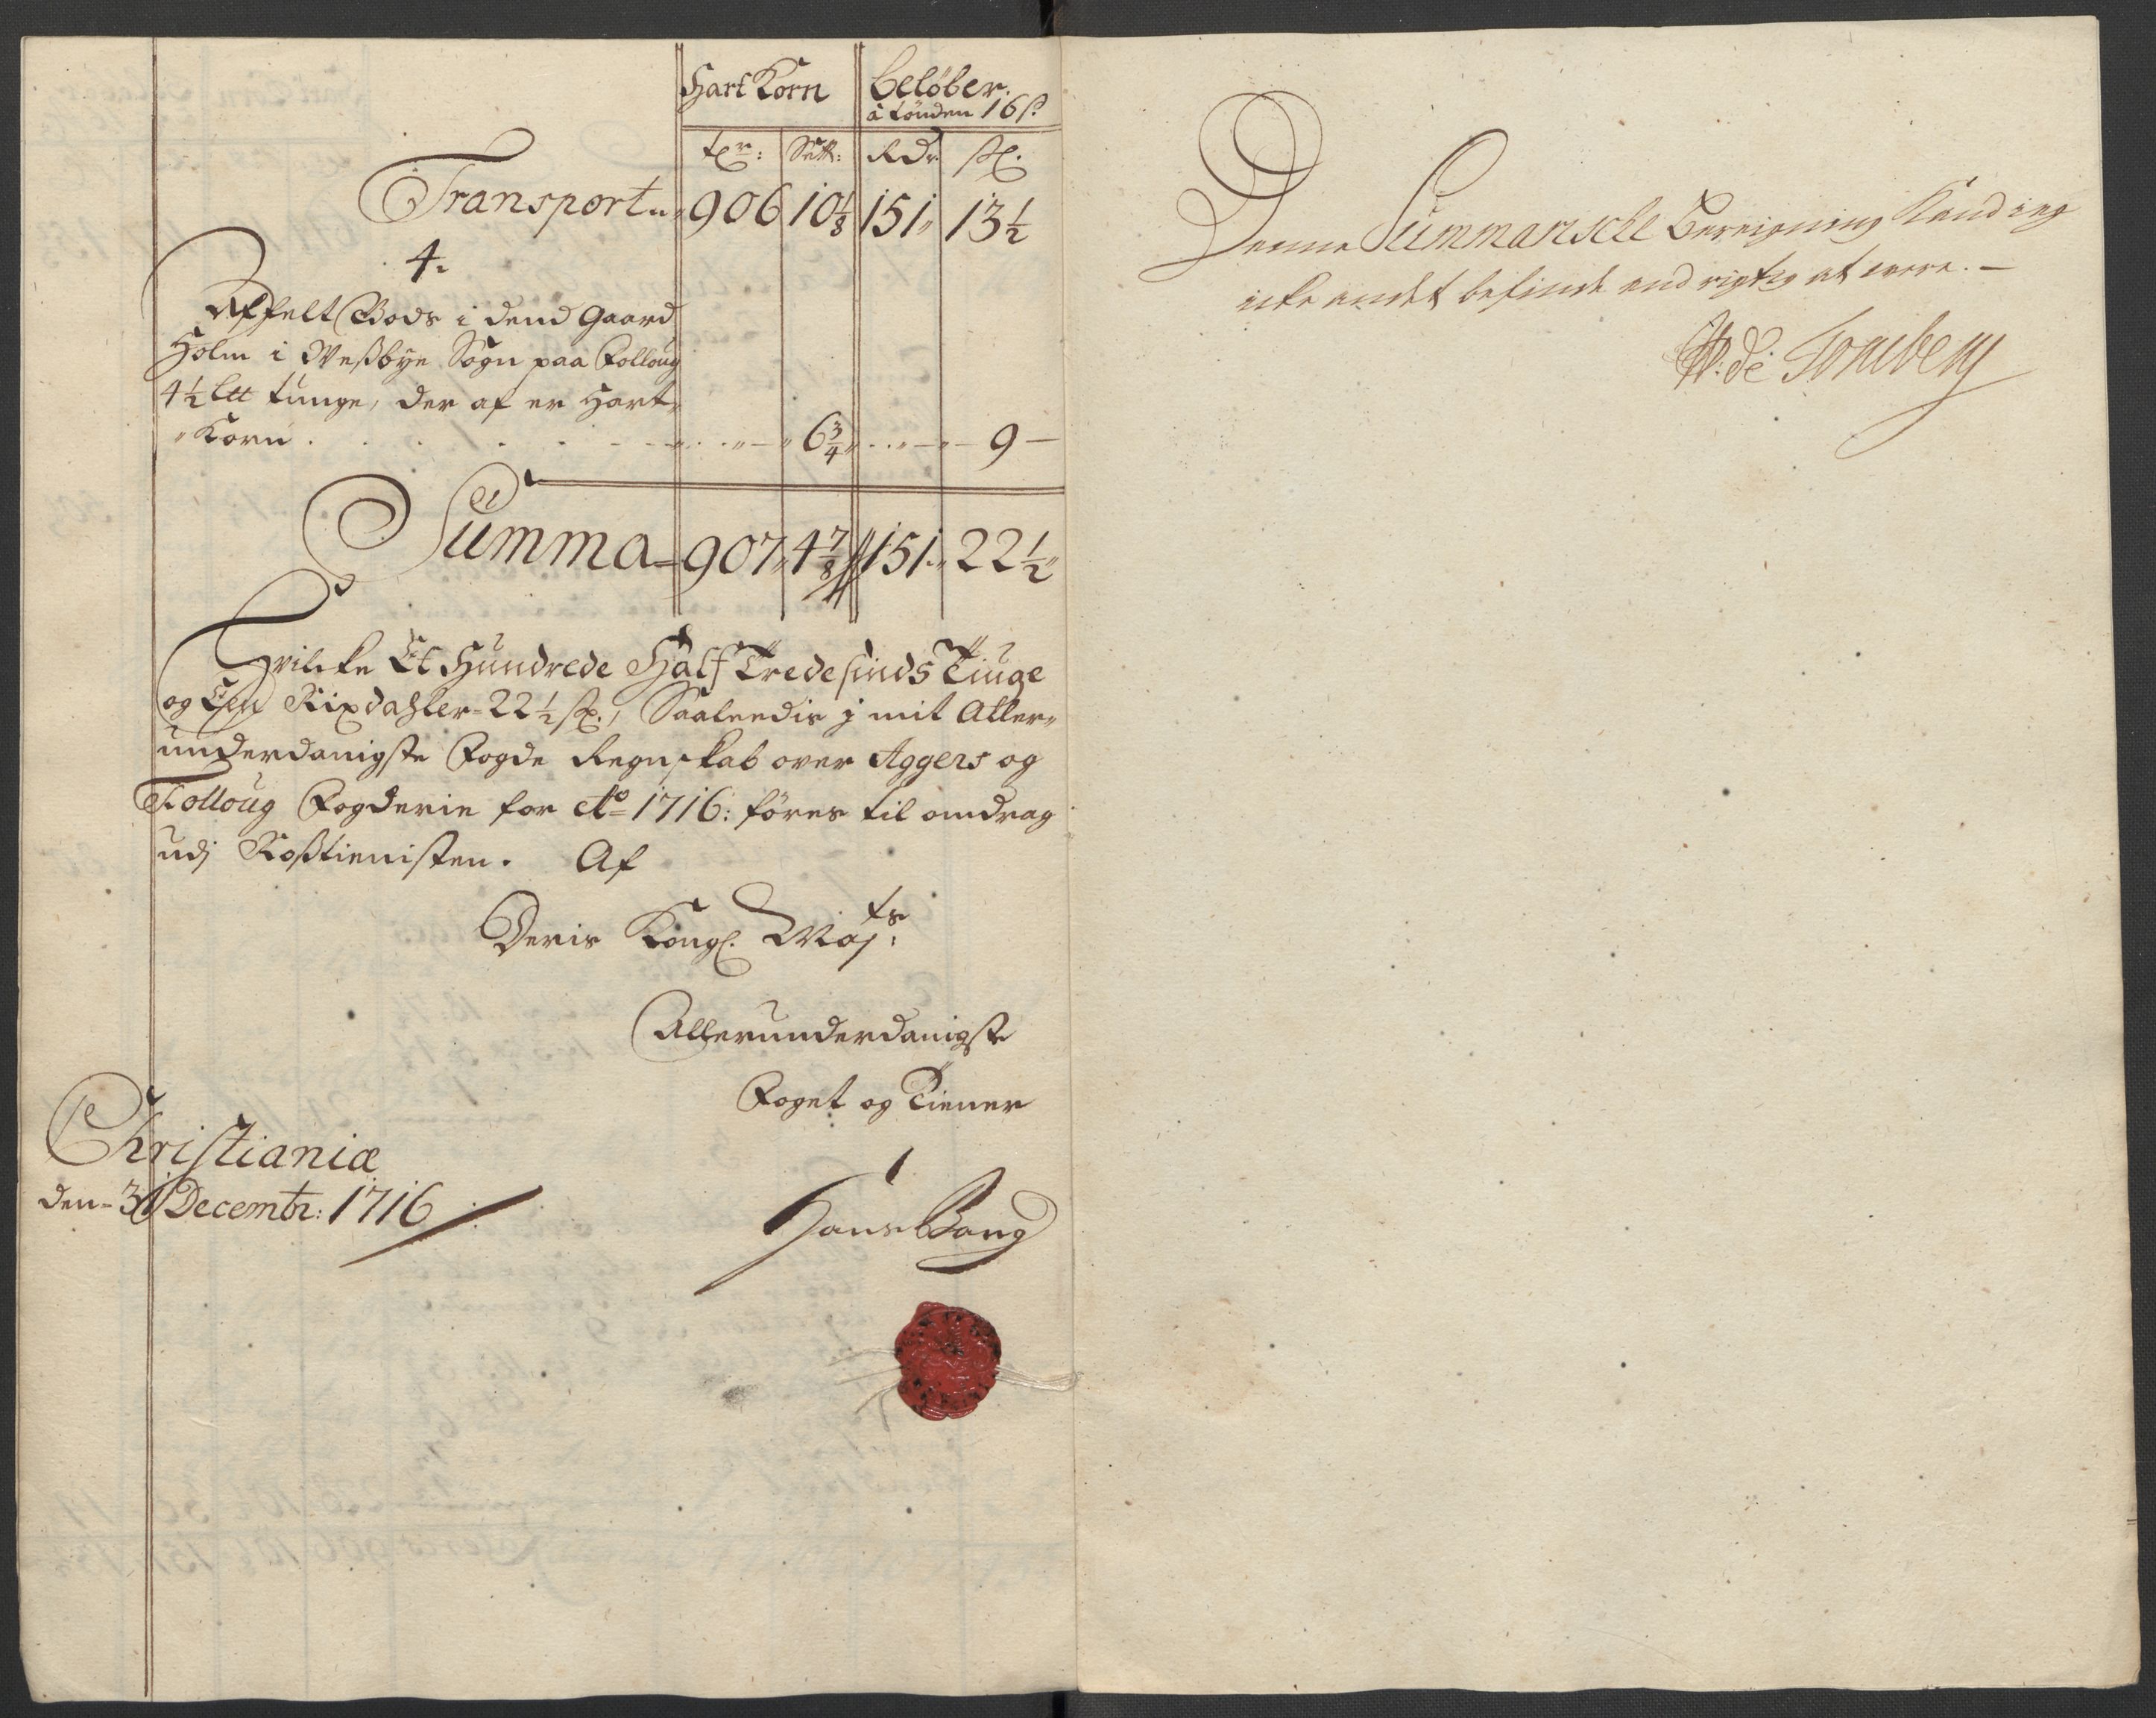 Hart Korn beløber.
à tønden 16 ß.
tr: Sett: Rdr. ß.
Transport 906 10 1/8 151 13 1/2
4.
Affelt Gods i dend Gaard
Holm i Weßbye Sogn paa Folloug
4 1/2 Ltt tunge, der af er Hart
Korn . . . . 6 3/4 . . 9 —
Summa 907 4 7/8 151 22 1/2
Hvilcke Et Hundrede Half Tredesinds Tiuge
og Een Rixdahler 22 1/2 ß., Saaleedis j mit Aller
underdanigste Fogde Regnskab over Aggers og
Folloug Fogderie for Ao 1716: føres til omdrag
udj Roßtienisten. Af
Deris Kongl. Majts:
Allerunderdanigste
Foget og Tiener
Christianiæ
den 31 Decembr: 1716
Hans Bang
Denne Summariske Bereigning Kand ieg
icke andet befinde end rigtig at vere. —
de Tonsberg